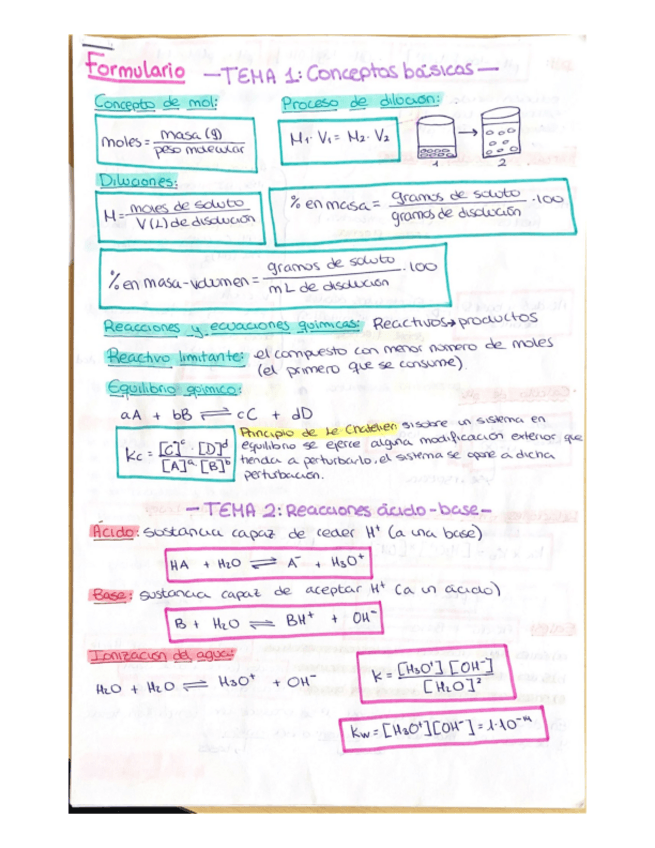 Formulario — TEMA 1: Conceptos básicos —
Concepto de mol: Proceso de dilución:
moles = masa (g) / peso molecular
M₁· V₁ = M₂· V₂
1 2
Diluciones:
M = moles de soluto / V(L) de disolución
% en masa = gramos de soluto / gramos de disolución · 100
% en masa-volumen = gramos de soluto / mL de disolución · 100
Reacciones y ecuaciones químicas: Reactivos → productos
Reactivo limitante: el compuesto con menor número de moles
(el primero que se consume).
Equilibrio químico:
aA + bB ⇌ cC + dD
Kc = [C]ᶜ · [D]ᵈ / [A]ᵃ · [B]ᵇ
Principio de Le Chatelier: si sobre un sistema en
equilibrio se ejerce alguna modificación exterior que
tienda a perturbarlo, el sistema se opone a dicha
perturbación.
— TEMA 2: Reacciones ácido-base —
Ácido: sustancia capaz de ceder H⁺ (a una base)
HA + H₂O ⇌ A⁻ + H₃O⁺
Base: sustancia capaz de aceptar H⁺ (a un ácido)
B + H₂O ⇌ BH⁺ + OH⁻
Ionización del agua:
H₂O + H₂O ⇌ H₃O⁺ + OH⁻
K = [H₃O⁺] [OH⁻] / [H₂O]²
Kw = [H₃O⁺][OH⁻] = 1·10⁻¹⁴